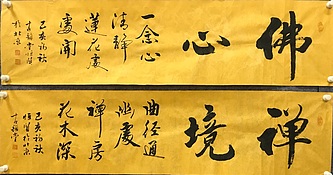 佛心
一念心
清静
莲花处
处开
己亥初秋
于北京
禅境
曲径通
幽處
禅房
花木深
己亥初秋